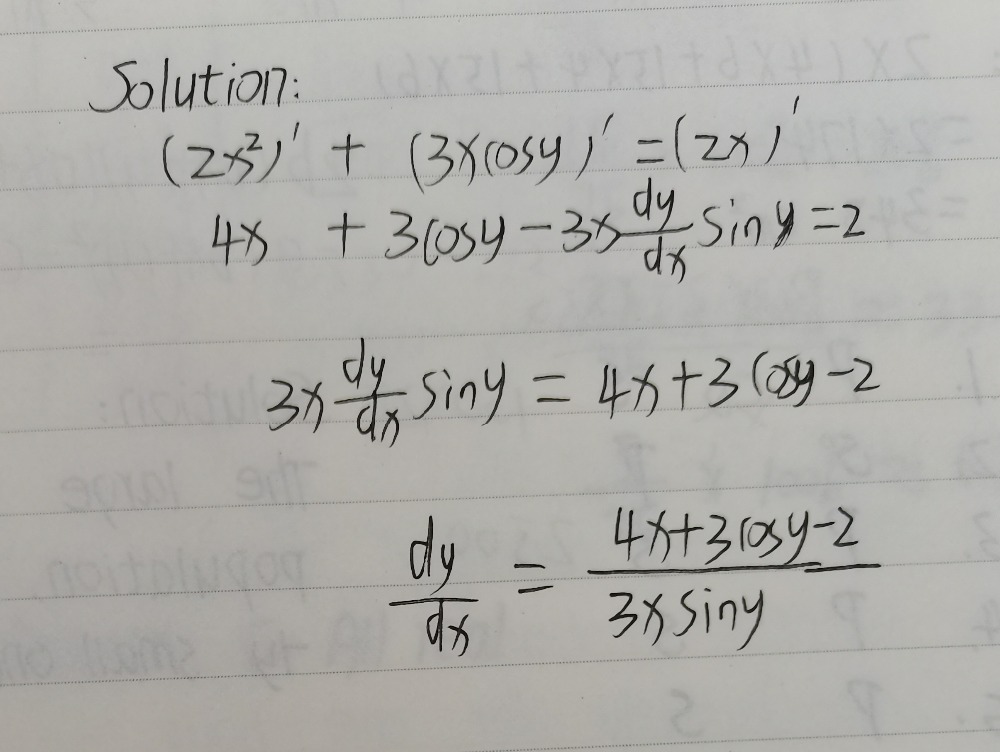 Solution:
(2x²)' + (3xcosy)' = (2x)'
4x + 3cosy - 3x dy/dx siny = 2
3x dy/dx siny = 4x + 3cosy - 2
dy/dx = (4x+3cosy-2)/(3xsiny)